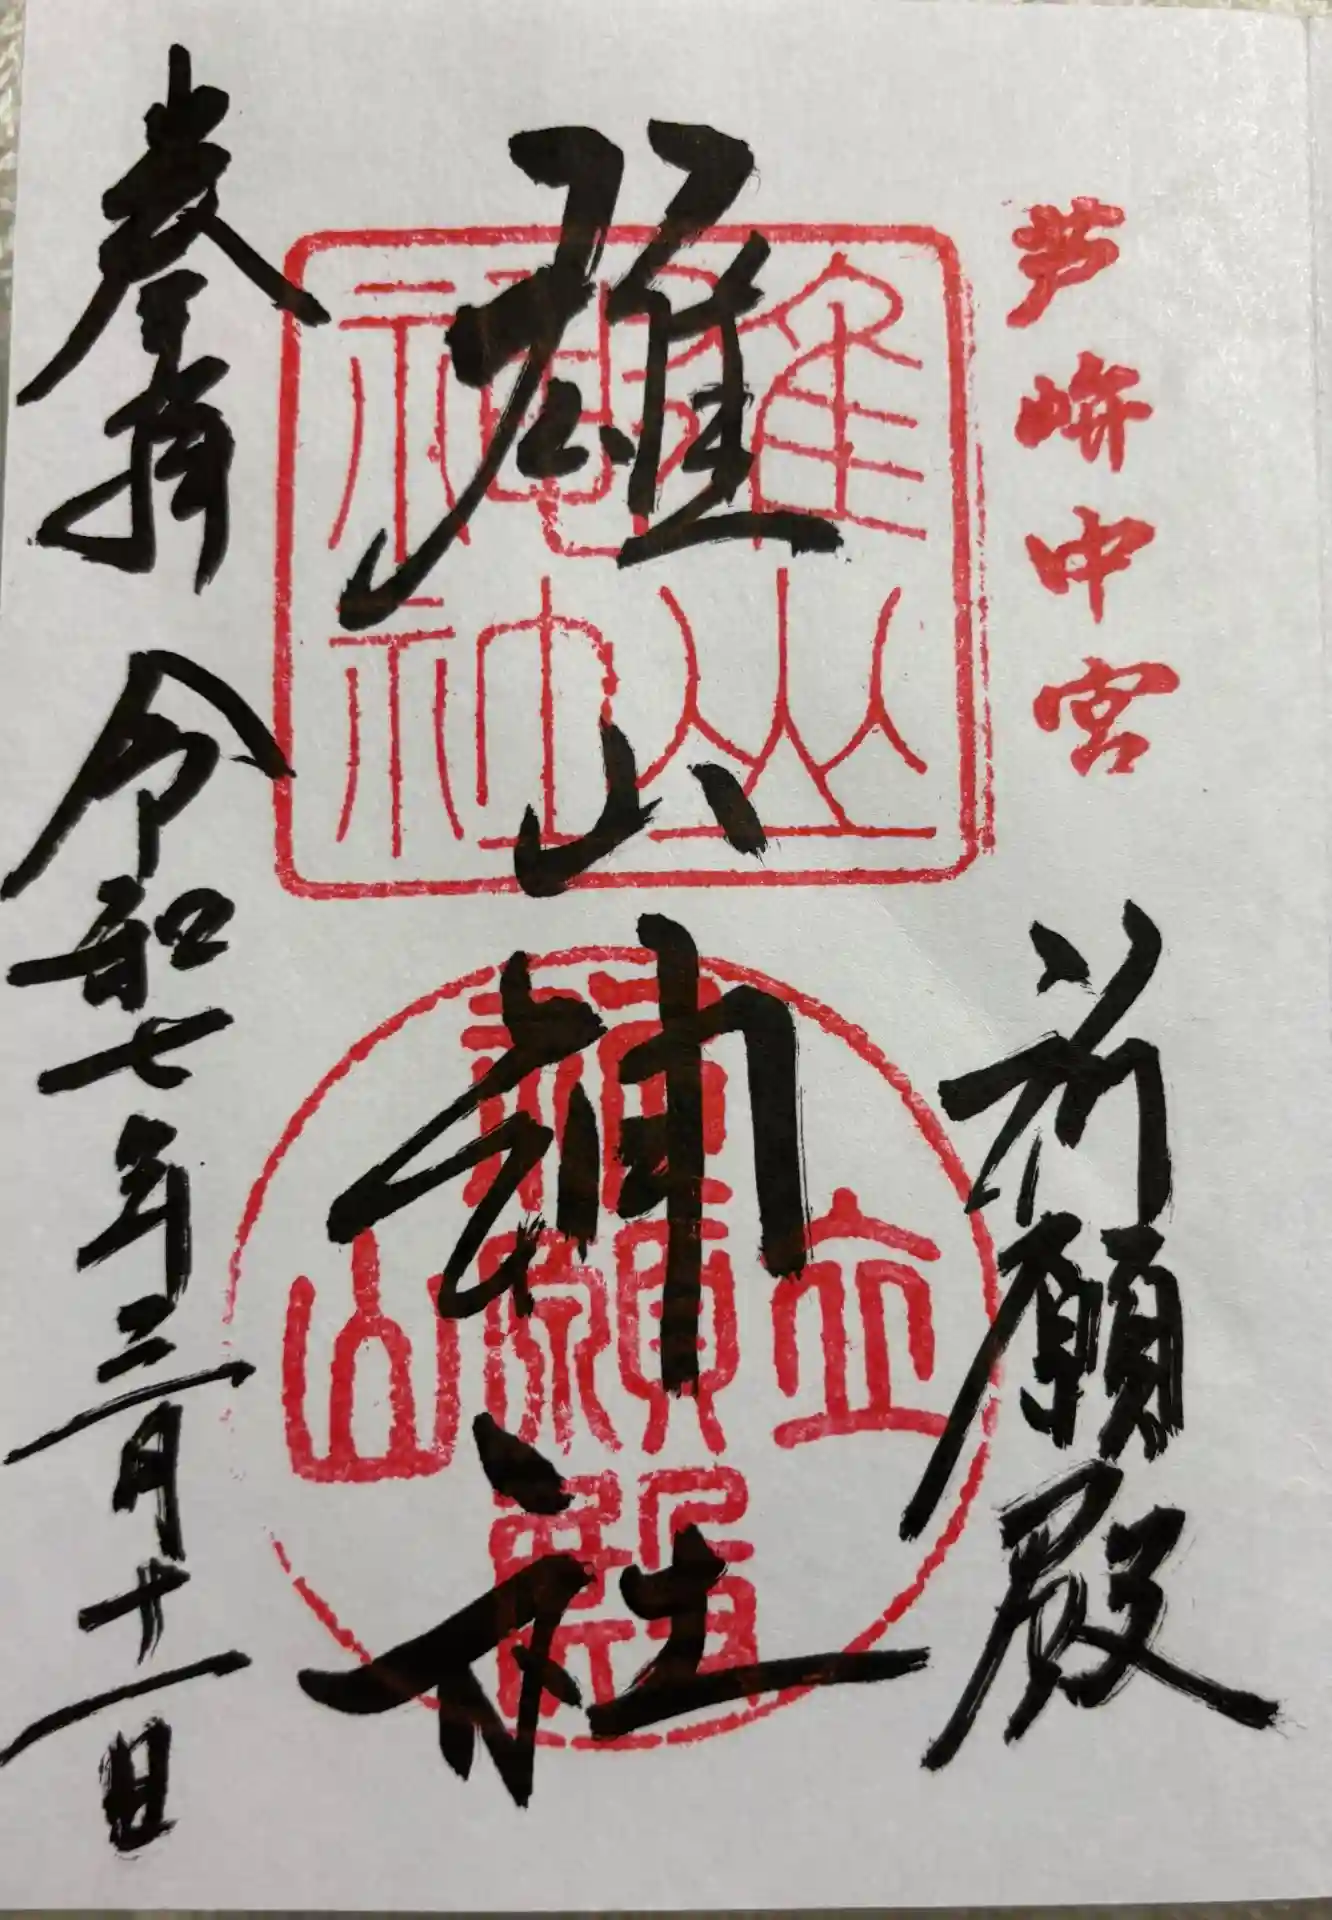 芦峅中宮
祈願殿
雄山神社
雄山
神神
立山
神社
祈願殿
奉拝 令和七年三月十一日